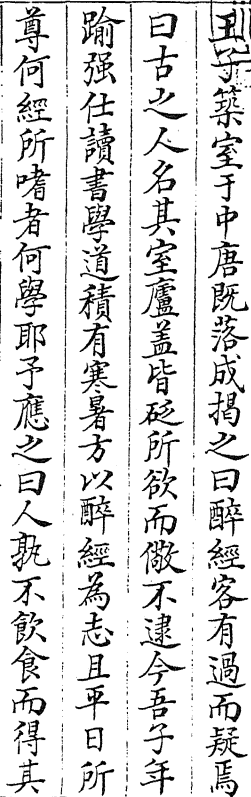 王子築室于中唐既落成揭之曰醉經客有過而疑焉
曰古之人名其室廬盖皆砭所欲而儆不逮今吾子年
踰强仕讀書學道積有寒暑方以醉經為志且平日所
尊何經所嗜者何學耶予應之曰人孰不飲食而得其